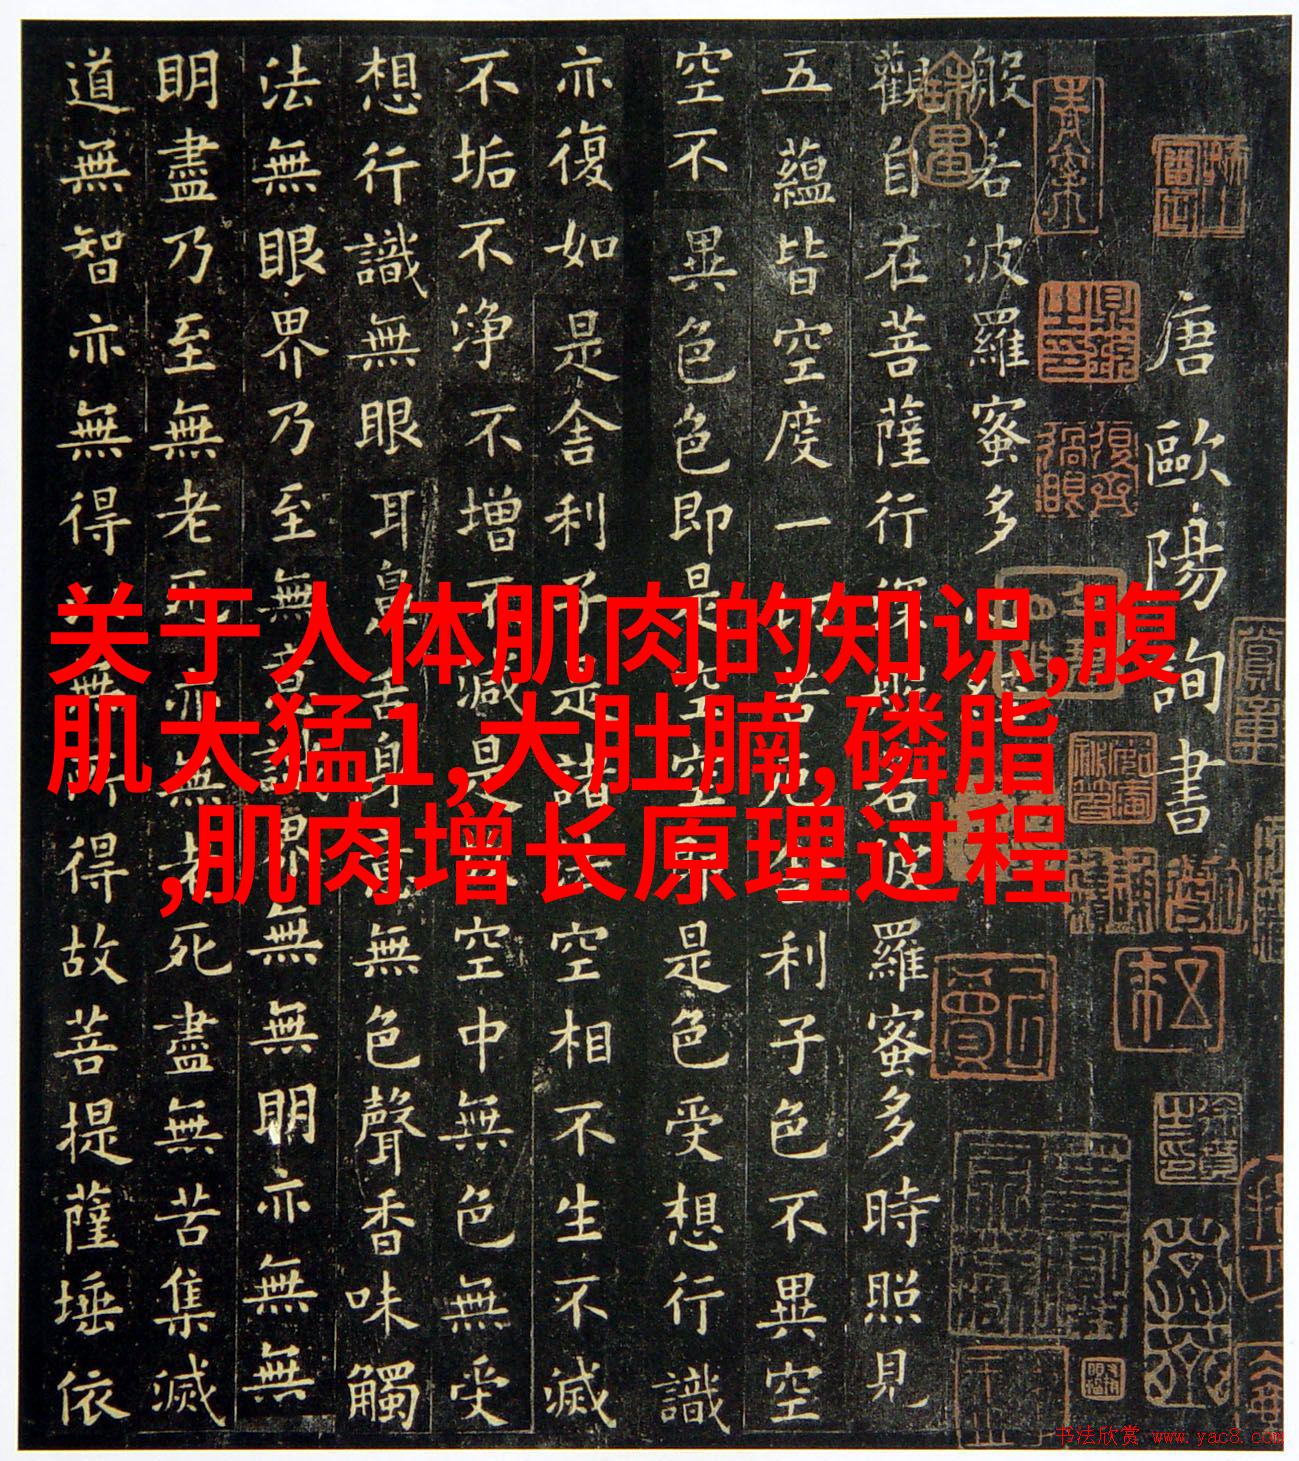 关于人体肌肉的知识,腹
肌大猛1,大肚腩,磷脂
,肌肉增长原理过程
唐歐陽詢書
般若波羅蜜多
觀自在菩薩行深般若波羅蜜多時照見
五蘊皆空度一切苦厄舍利子色不異空
空不異色色即是空空即是色受想行識
亦復如是舍利子是諸法空相不生不滅
不垢不淨不增不減是故空中無色無受
想行識無眼耳鼻舌身意無色聲香味觸
法無眼界乃至無意識界無無明亦無無
明盡乃至無老死亦無老死盡無苦集滅
道無智亦無得以無所得故菩提薩埵依
书法欣赏 www.yac8.com